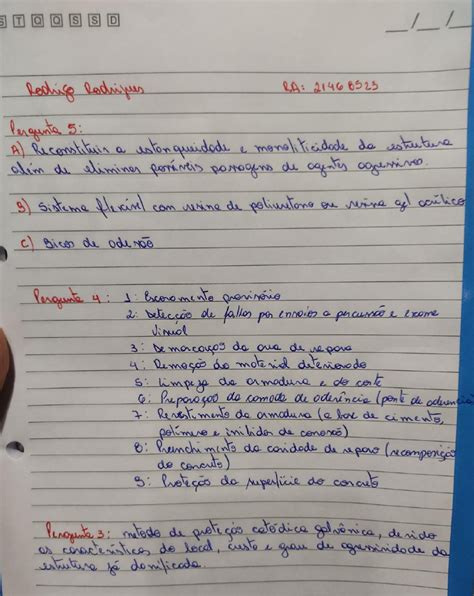 S T Q Q S S D
__/__/__
Rodrigo Rodrigues RA: 21468523
Pergunta 5:
A) Reconstituir a estanqueidade e monoliticidade da estrutura
além de eliminar possíveis passagens de agentes agressivos.
B) Sistema flexível com resina de poliuretano ou resina gel acrílico
C) Bicos de adesão
Pergunta 4: 1: Escoramento provisório
2: Detecção de falhas por ensaios a percussão e exame
visual
3: Demarcação da área de reparo
4: Remoção do material deteriorado
5: Limpeza da armadura e do corte
6: Preparação da camada de aderência (ponte de aderência)
7: Revestimento da armadura (a base de cimento,
polímero e inibidor de corrosão)
8: Preenchimento da cavidade de reparo (recomposição
do concreto)
9: Proteção da superfície do concreto
Pergunta 3: método de proteção catódica galvânica, devido
as características do local, custo e grau de agressividade da
estrutura já danificada.